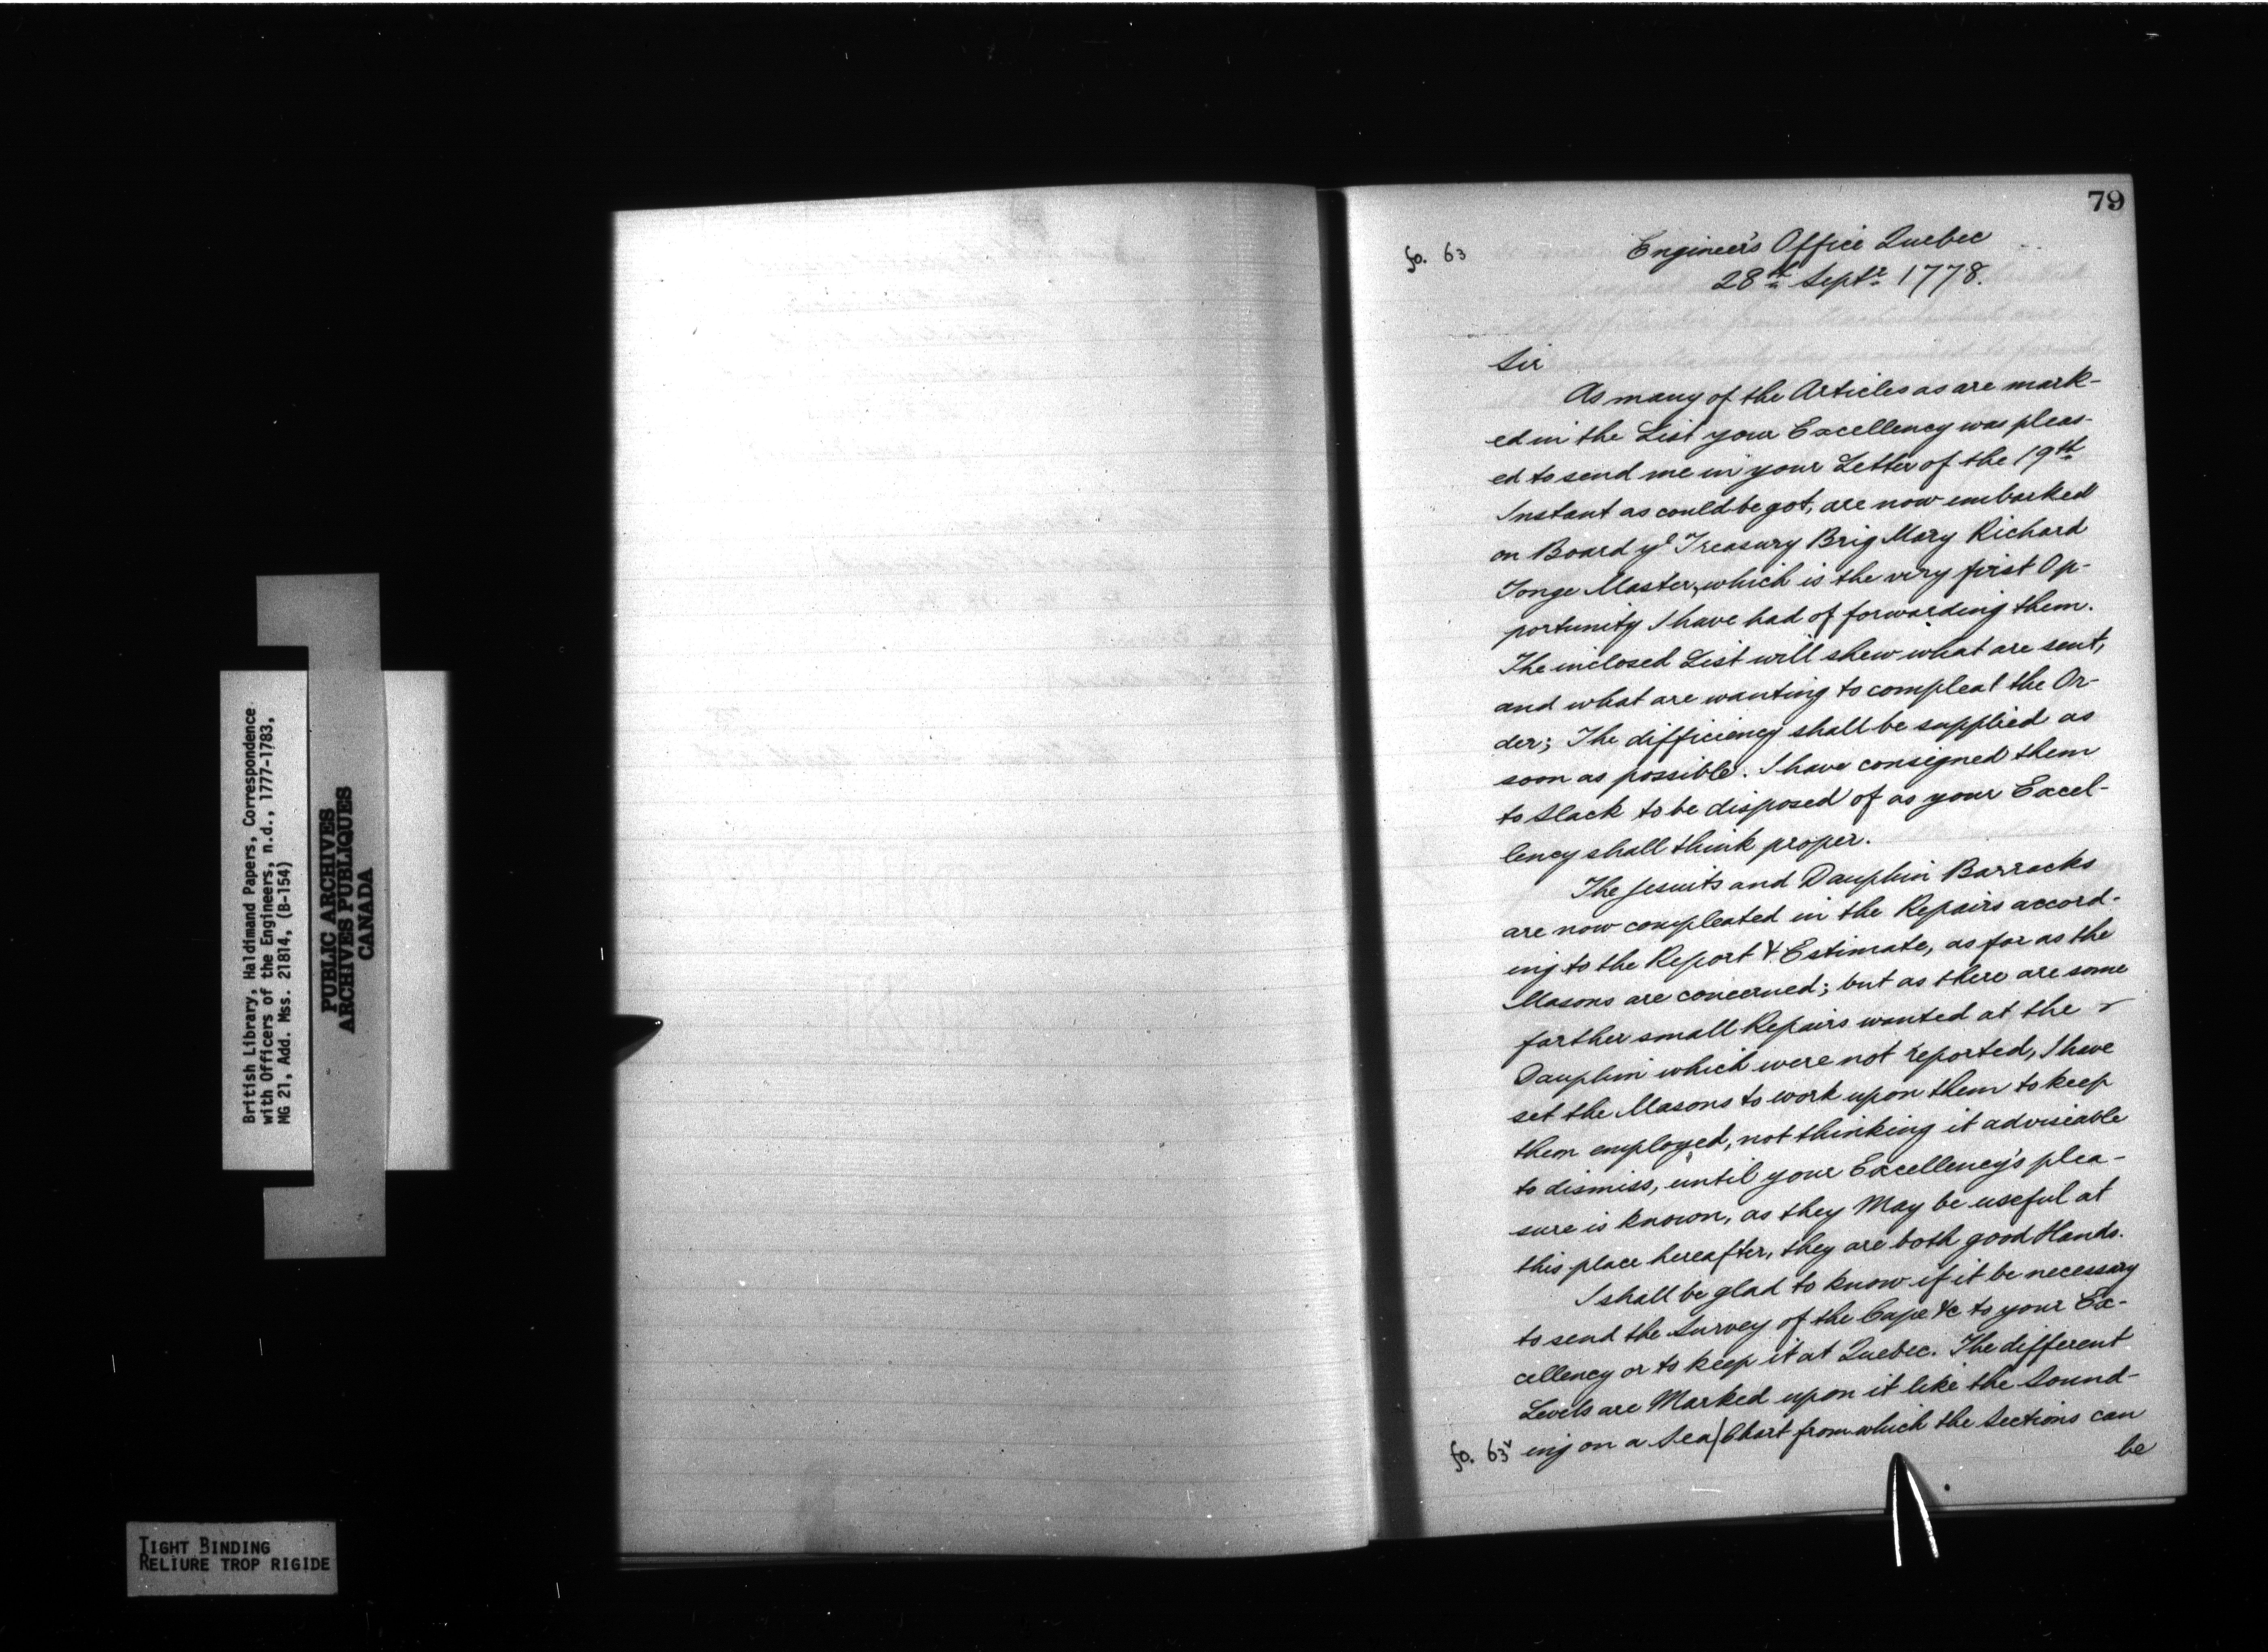 British Library, Haldimand Papers, Correspondence
with Officers of the Engineers, n.d., 1777-1783,
MG 21, Add. Mss. 21814, (B-154)
PUBLIC ARCHIVES
ARCHIVES PUBLIQUES
CANADA
TIGHT BINDING
RELIURE TROP RIGIDE
79
fo. 63
Engineer's Office Quebec
28th Septr 1778.
Sir
As many of the Articles as are mark-
ed in the List your Excellency was pleas-
ed to send me in your Letter of the 19th
Instant as could be got, are now embarked
on Board ye Treasury Brig Mary Richard
Tonge Master, which is the very first Op-
portunity I have had of forwarding them.
The inclosed List will shew what are sent,
and what are wanting to compleat the Or-
der; The difficiency shall be supplied as
soon as possible. I have consigned them
to Slack to be disposed of as your Excel-
lency shall think proper.
The Jesuits and Dauphin Barracks
are now compleated in the Repairs accord-
ing to the Report & Estimate, as far as the
Masons are concerned; but as there are some
farther small Repairs wanted at the
Dauphin which were not reported, I have
set the Masons to work upon them to keep
them employed, not thinking it adviseable
to dismiss, until your Excellency's plea-
sure is known, as they May be useful at
this place hereafter, they are both good Hands.
I shall be glad to know if it be necessary
to send the Survey of the Cape &c to your Ex-
cellency or to keep it at Quebec. The different
Levels are Marked upon it like the Sound-
fo. 63v ing on a Sea/Chart from which the Sections can
be